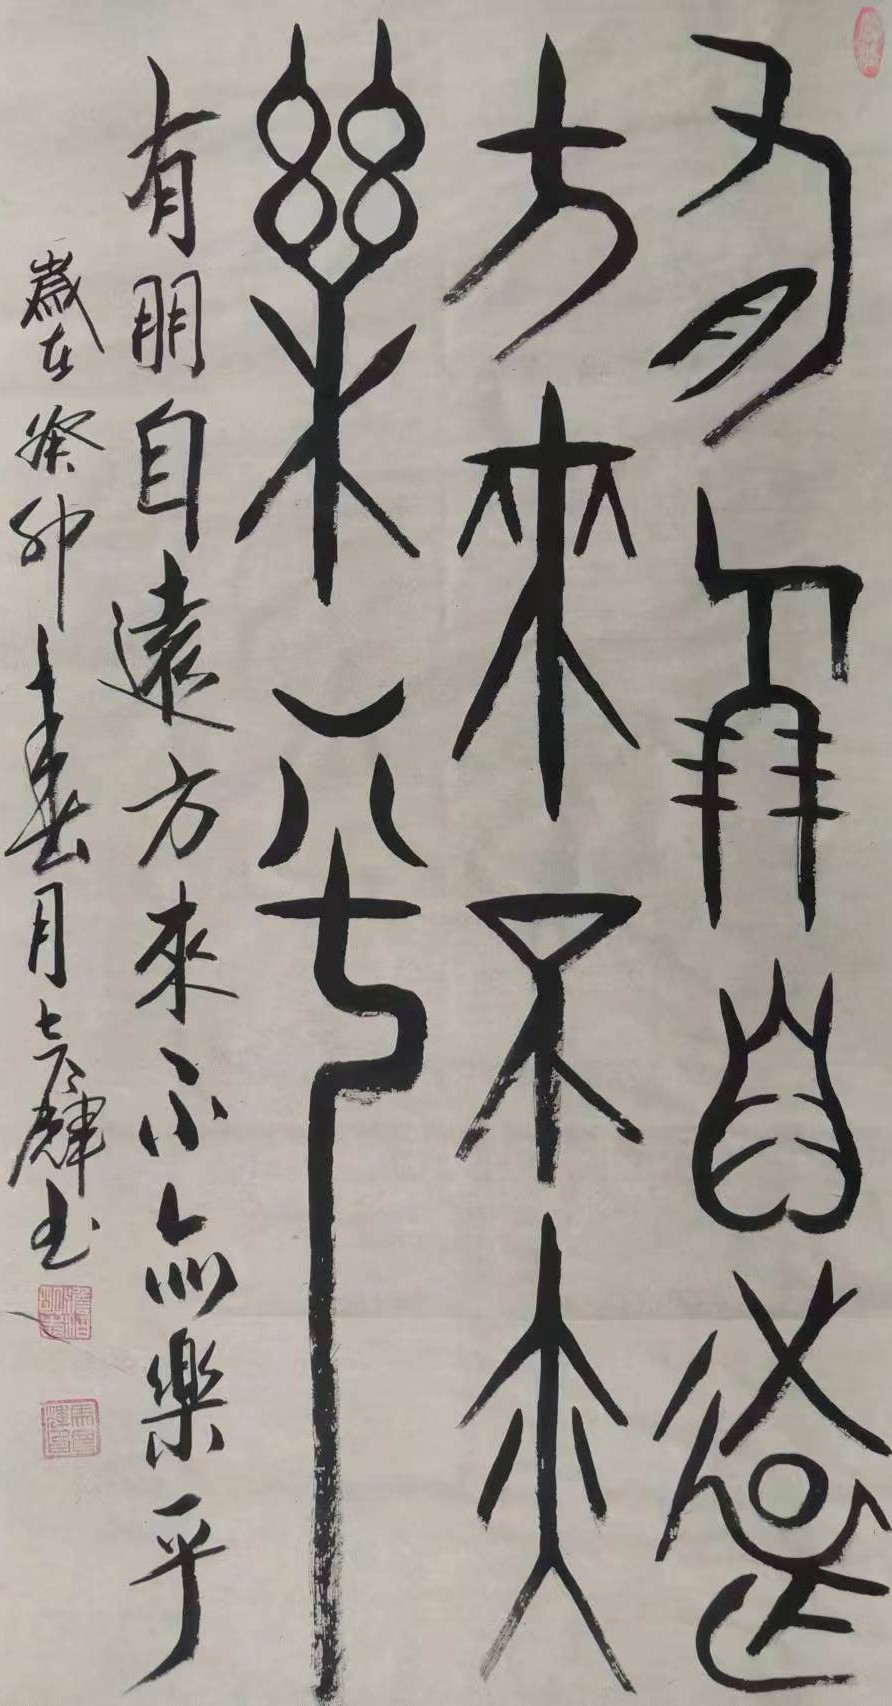 有朋自遠
方來不亦
樂乎
有朋自遠方來不亦樂乎
歲在癸卯春月
書